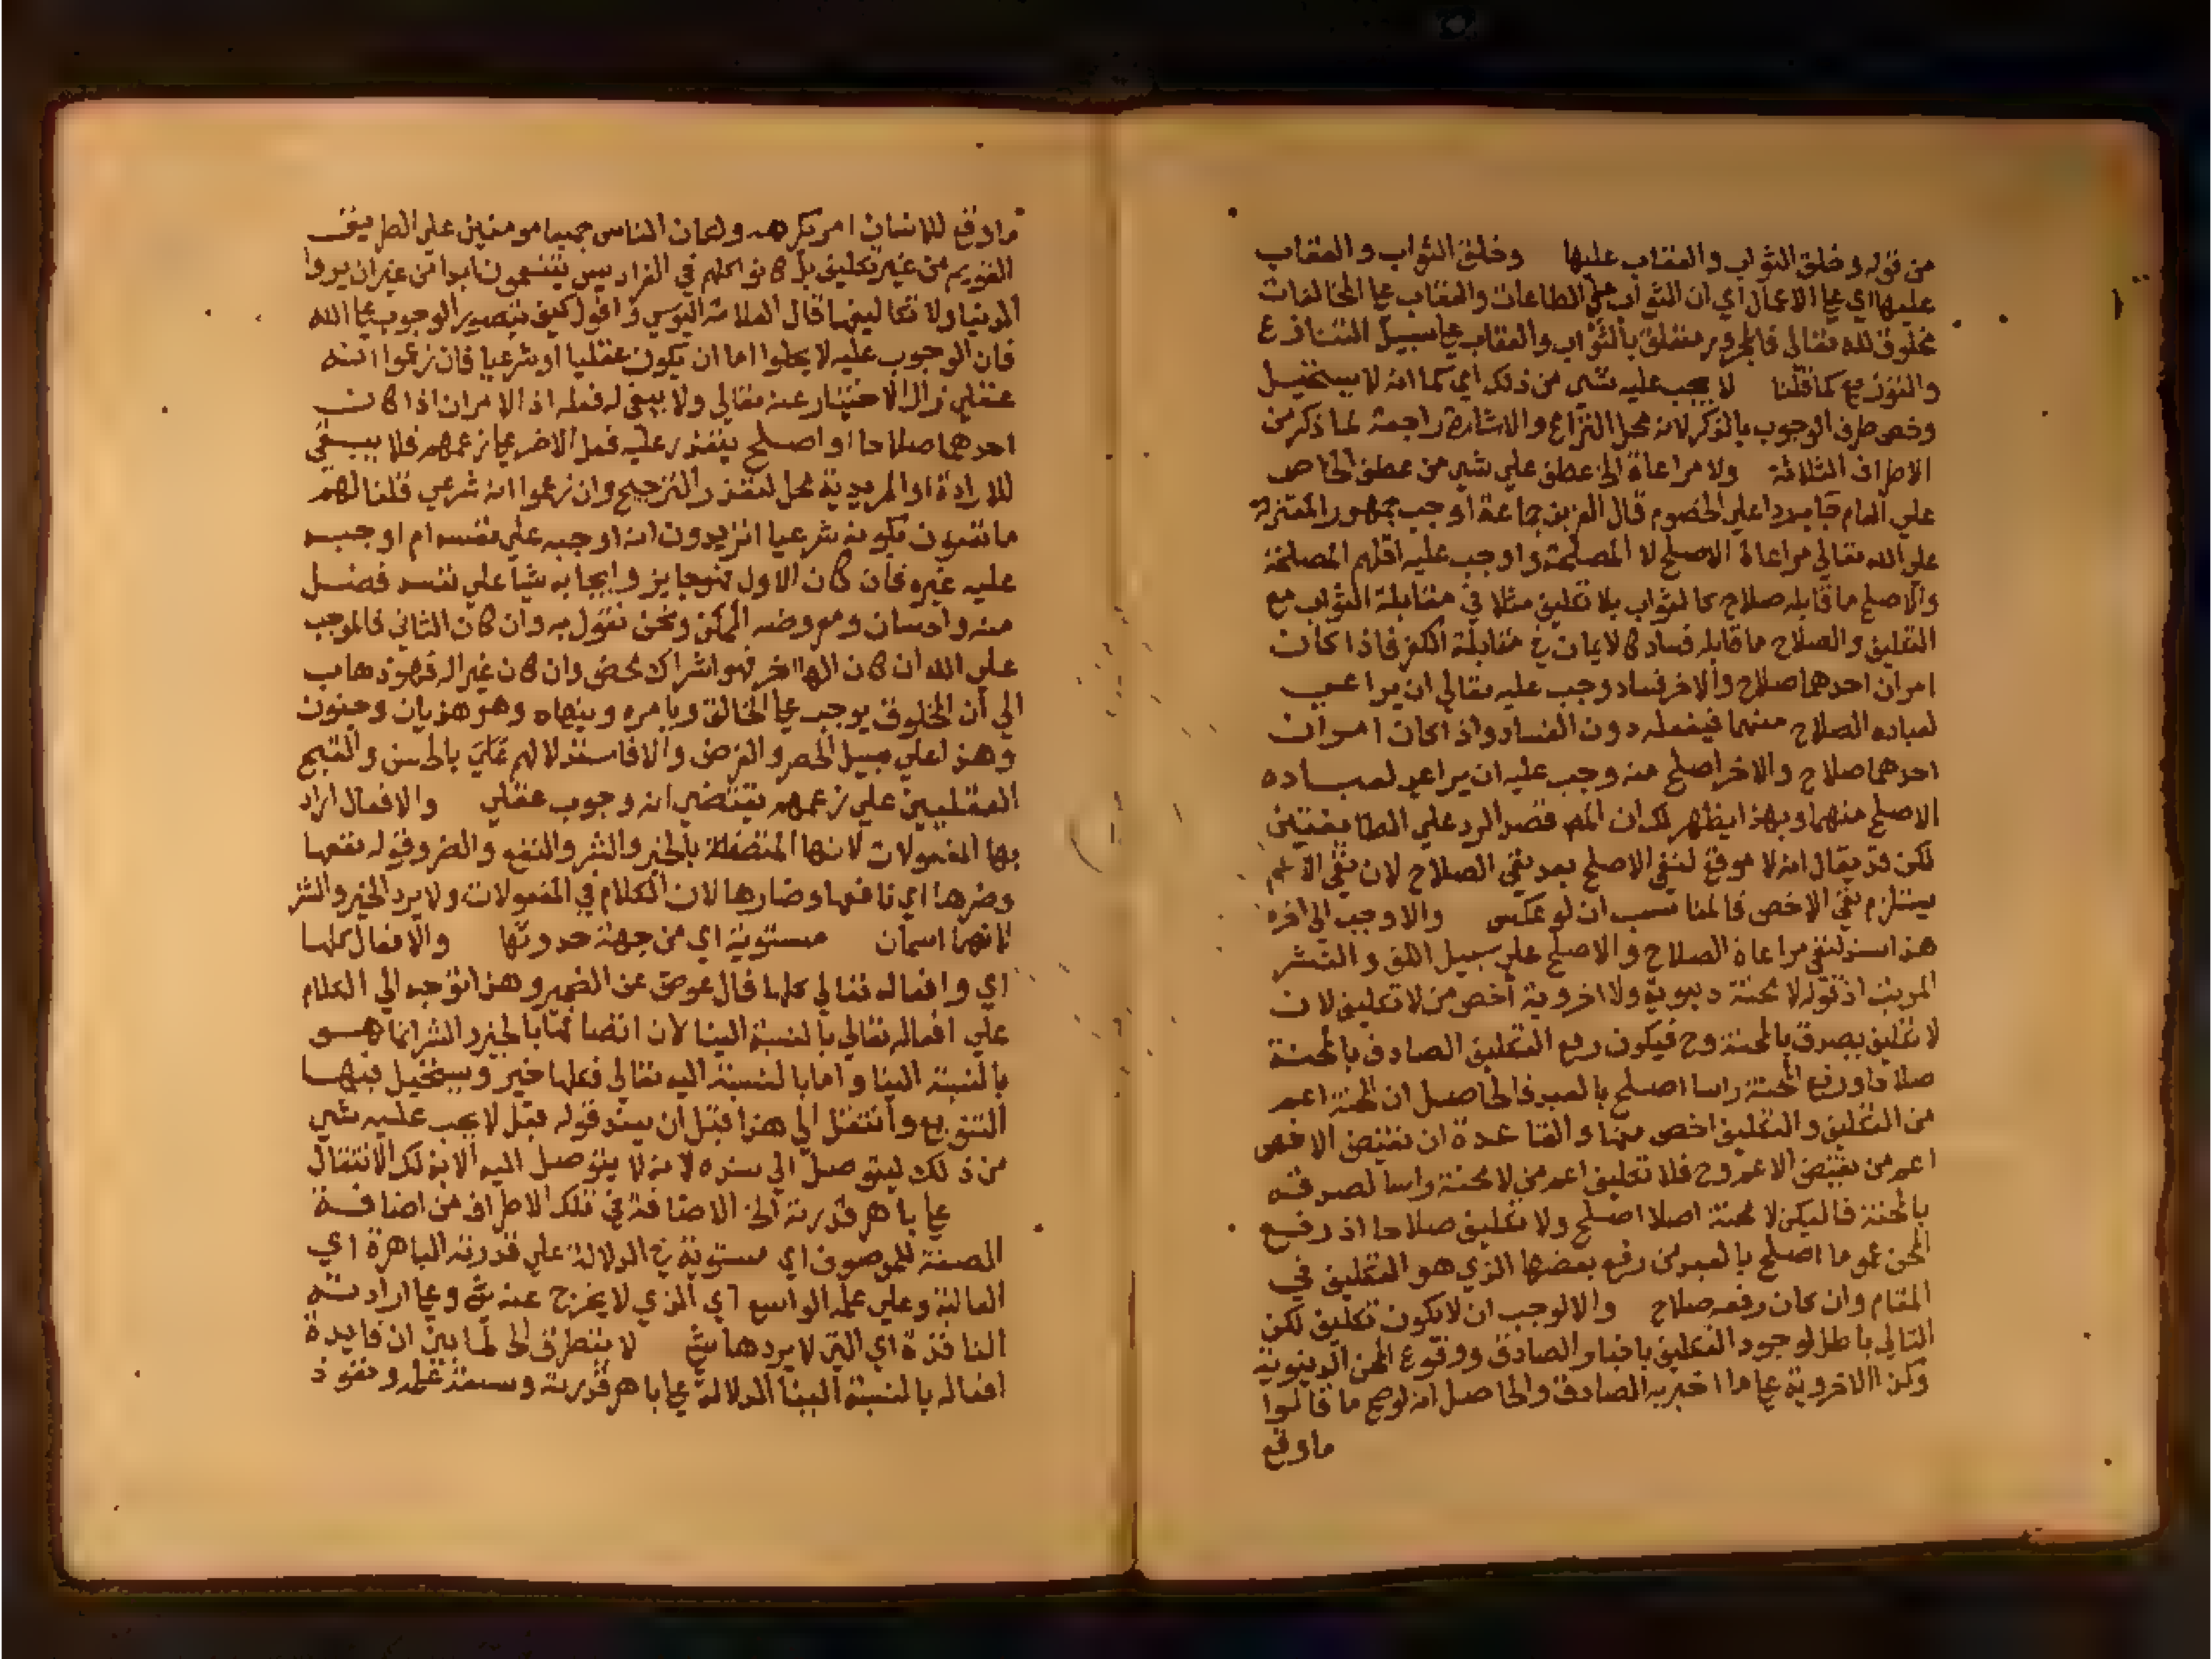 من قوله وخلق الثواب والعقاب عليها وخلق الثواب والعقاب
عليها اي علي الاعمال اي ان الثواب علي الطاعات والعقاب علي المخالفات
مخلوق لله تعالى فالمجرور متعلق بالثواب والعقاب علي سبيل التنازع
والتوزيع كما قلنا لا يجب عليه شي من ذلك اي كما انه لا يستحيل
وخص طرف الوجوب بالذكر لانه محل النزاع والاشارة راجعة لما ذكر من
الاطراف الثلاثة ولا مراعاة الخ عطف علي شي من عطف الخاص
علي العام جا به ردا علي الخصوم قال العز بن جماعة اوجب جمهور المعتزلة
علي الله تعالي مراعاة الاصلح لا المصلحة واوجب عليه اقلهم المصلحة
والاصلح ما قابله صلاح كالثواب بلا تكليف مثلا في مقابلة الثواب مع
التكليف والصلاح ما قابله فساد كالايمان في مقابلة الكفر فاذا كان
امران احدهما صلاح والاخر فساد وجب عليه تعالي ان يراعي
لعباده الصلاح منهما فيفعله دون الفساد واذا كان امران
احدهما صلاح والاخر اصلح منه وجب عليه ان يراعي لعباده
الاصلح منهما وبهذا يظهر لك ان المص قصد الرد علي الطايفتين
لكن قد يقال انه لا موقع لنفي الاصلح بعد نفي الصلاح لان نفي الاعم
يستلزم نفي الاخص فالمناسب ان لو عكس والا وجب الي اخره
هذا سند لنفي مراعاة الصلاح والاصلح علي سبيل اللف والنشر
المرتب اذ قوله لا محنة دنيوية ولا اخروية اخص من لا تكليف لان
لا تكليف يصدق بالمحنة وح فيكون رفع التكليف الصادق بالمحنة
صلاحا ورفع المحنة راسا اصلح بالعبد فالحاصل ان المحنة اعم
من التكليف والتكليف اخص منها والقاعدة ان نقيض الاخص
اعم من نقيض الاعم وح فلا تكليف اعم من لا محنة راسا لصدقه
بالمحنة فاليكن لا محنة اصلا اصلح ولا تكليف صلاحا اذ رفع
المحن عموما اصلح بالعبد من رفع بعضها الذي هو التكليف في
المقام وان كان رفعه صلاح والا لوجب ان لا يكون تكليف لكن
التالي باطل لوجود التكليف باخبار الصادق ووقوع المحن الدنيوية
وكذا الاخروية علي ما اخبر به الصادق والحاصل انه لو صح ما قالوا
ما وقع
ما وقع للانسان امر يكرهه ولكان الناس جميعا مومنين علي الطريق
القويم من غير تكليف بل كانوا كلهم في الفراديس يتنعمون ابدا من غير ان يروا
الدنيا ولا تكاليفها قال العلامة اليوسي واقول كيف يتصور الوجوب علي الله
فان الوجوب عليه لا يخلوا اما ان يكون عقليا او شرعيا فان زعموا انه
عقلي زال الاختيار عنه تعالي ولا يبقي له فعله اذ الامران اذا كان
احدهما صلاحا او اصلح يتعذر عليه فعل الاخر علي زعمهم فلا يبقي
للارادة او المريدية محل لتعذر الترجيح وان زعموا انه شرعي قلنا لهم
ما تعنون بكونه شرعيا اتريدون انه اوجبه علي نفسه ام اوجبه
عليه غيره فان كان الاول فهو جايز وايجابه شيا علي نفسه فضل
منه واحسان ومعروضه الممكن ونحن نقول به وان كان الثاني فالموجب
علي الله ان كان الها اخر فهو اشراك محض وان كان غير اله فهو ذهاب
الي ان المخلوق يوجب علي الخالق ويامره وينهاه وهو هذيان وجنون
وهذا علي سبيل الحصر والفرض والا فاستدلالهم علي بالحسن والقبح
العقليين علي زعمهم يقتضي انه وجوب عقلي والافعال اراد
بها المفعولات لانها المتصفة بالخير والشر والنفع والضر وقوله نفعها
وضرها اي نافعها وضارها لان الكلام في المفعولات ولا يرد الخير والشر
لانهما اسمان مستوية اي من جهة حدوثها والافعال كلها
اي وافعاله تعالي كلها فال عوض عن الضمير وهذا توجه الي الكلام
علي افعاله تعالي بالنسبة الينا لان اتصافها بالخير والشر انما هو
بالنسبة الينا واما بالنسبة اليه تعالي فعلها خير ويستحيل فيها
التنويع وانتقل الي هذا قبل ان يسند قوله قبل لا يجب عليه شي
من ذلك ليتوصل الي سنده لانه لا يتوصل اليه الا بذلك الانتقال
علي باهر قدرته الخ الاضافة في تلك الاطراف من اضافة
الصفة للموصوف اي مستوية في الدلالة علي قدرته الباهرة اي
الغالبة وعلي علمه الواسع اي الذي لا يخرج عنه شي وعلي ارادته
النافذة اي التي لا يردها شي لا يتطرق الخ لما بين ان فايدة
افعاله بالنسبة الينا الدلالة علي باهر قدرته وسعة علمه ونفوذ